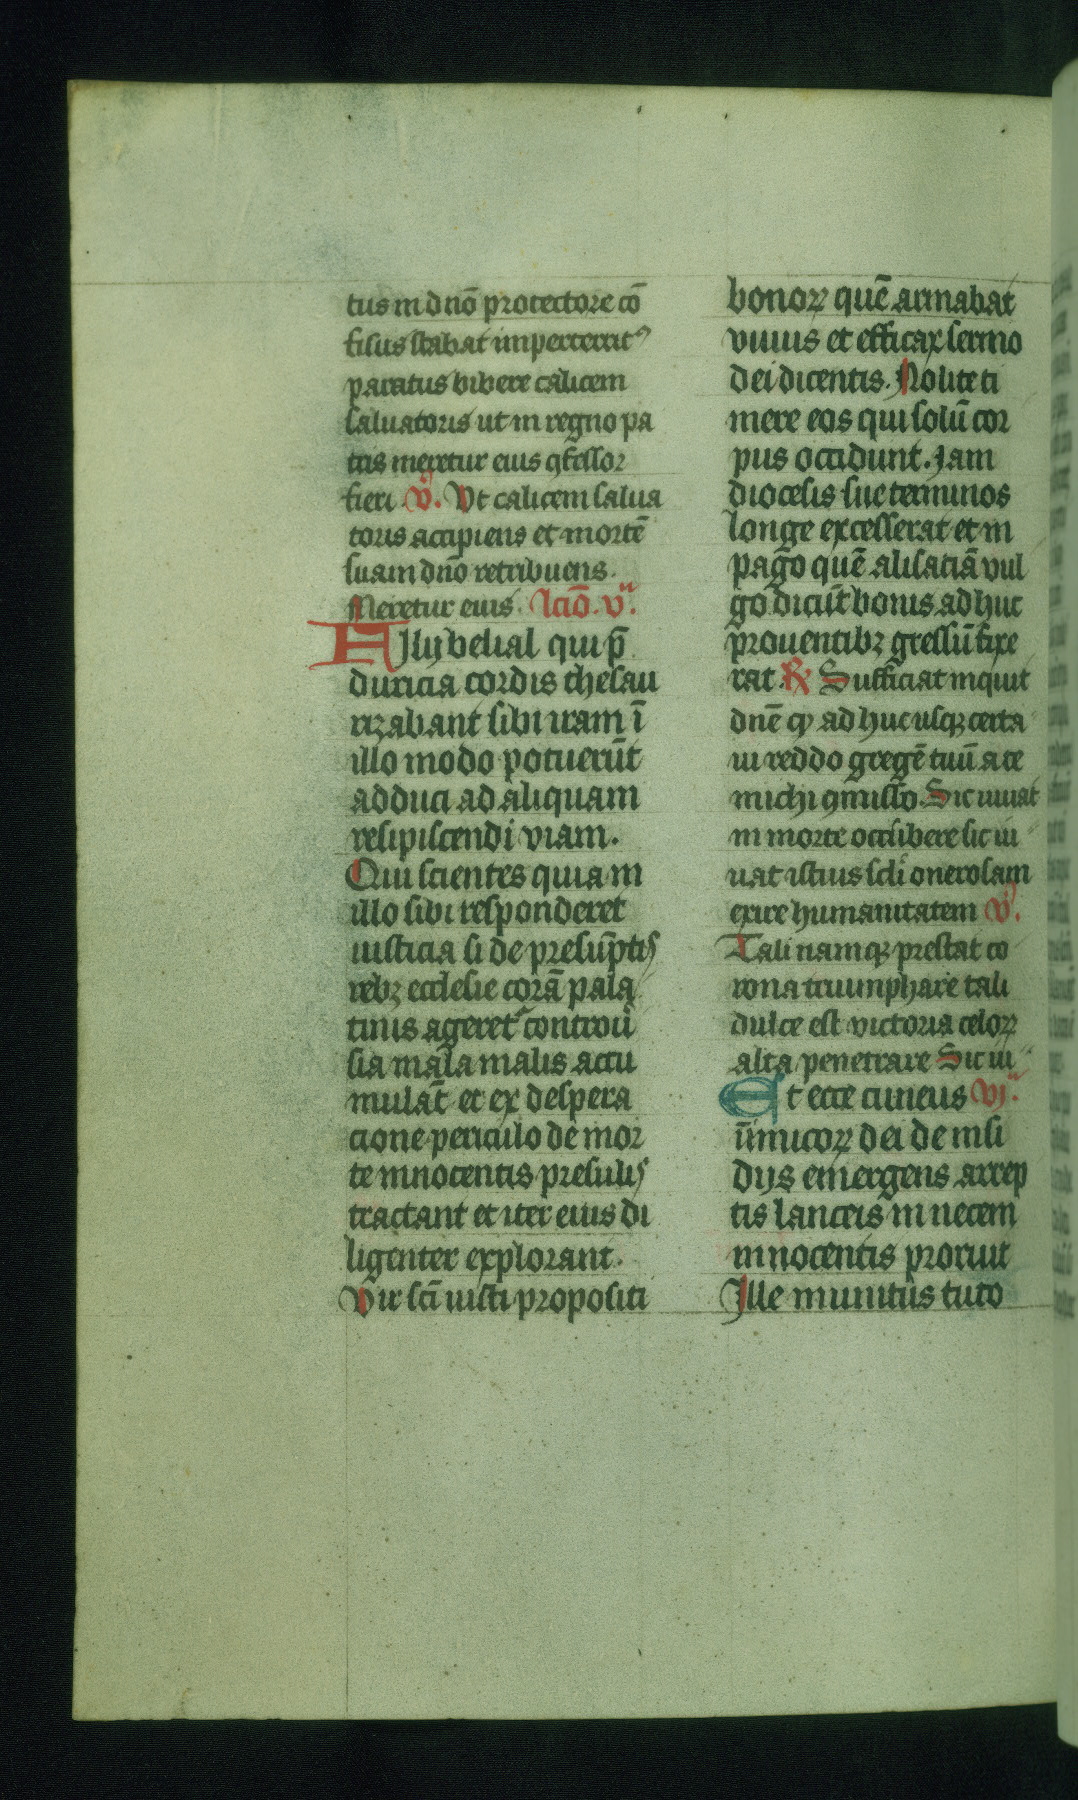 tus in dno᷒ protectore cō
fisus stabat imperterrit⁹
paratus bibere calicem
saluatoris ut in regno pa
tris meretur eius ꝯfessor
fieri v̄. Ut calicem salua
toris accipiens et mortē
suam dn̄o retribuens.
Meretur eius. lcīo. v
Filij belial qui p̄
duricia cordis thesau
rizabant sibi iram ī
illo modo potuerūt
adduci ad aliquam
resipiscendi viam.
Qui scientes quia in
illo sibi responderet
iusticia si de presūptis
rebꝫ ecclesie corā pala
tinis ageret᷑ controū
sia mala malis accu
mulāt et ex despera
cione periculo de mor
te innocentis presulis
tractant et iter eius di
ligenter explorant.
Vir scī iusti propositi
bonoꝝ quē armabat
viuus et efficax sermo
dei dicentis. Nolite ti
mere eos qui solū cor
pus occidunt. Jam
diocesis sue terminos
longe excesserat et in
pago quē alisaciā vul
go dicūt bonis adhuc
prouentibꝫ gressū fixe
rat ℟ Sufficiat inquit
dnē ꝙ adhuc usqꝫ certa
ui reddo gregē tuū a te
michi ꝯmissō. Sic iuuat
in morte occūbere sic iu
uat istius scłi onerosam
exire humanitatem v̄.
Tali namqꝫ prestat co
rona triumphare tali
dulce est victoria celoꝝ
alta penetrare Sic iu
Et ecce cuneus vj
inimicoꝝ dei de insi
dijs emergens arrep
tis lanceis in necem
innocentis proruit
Ille munitus tuto